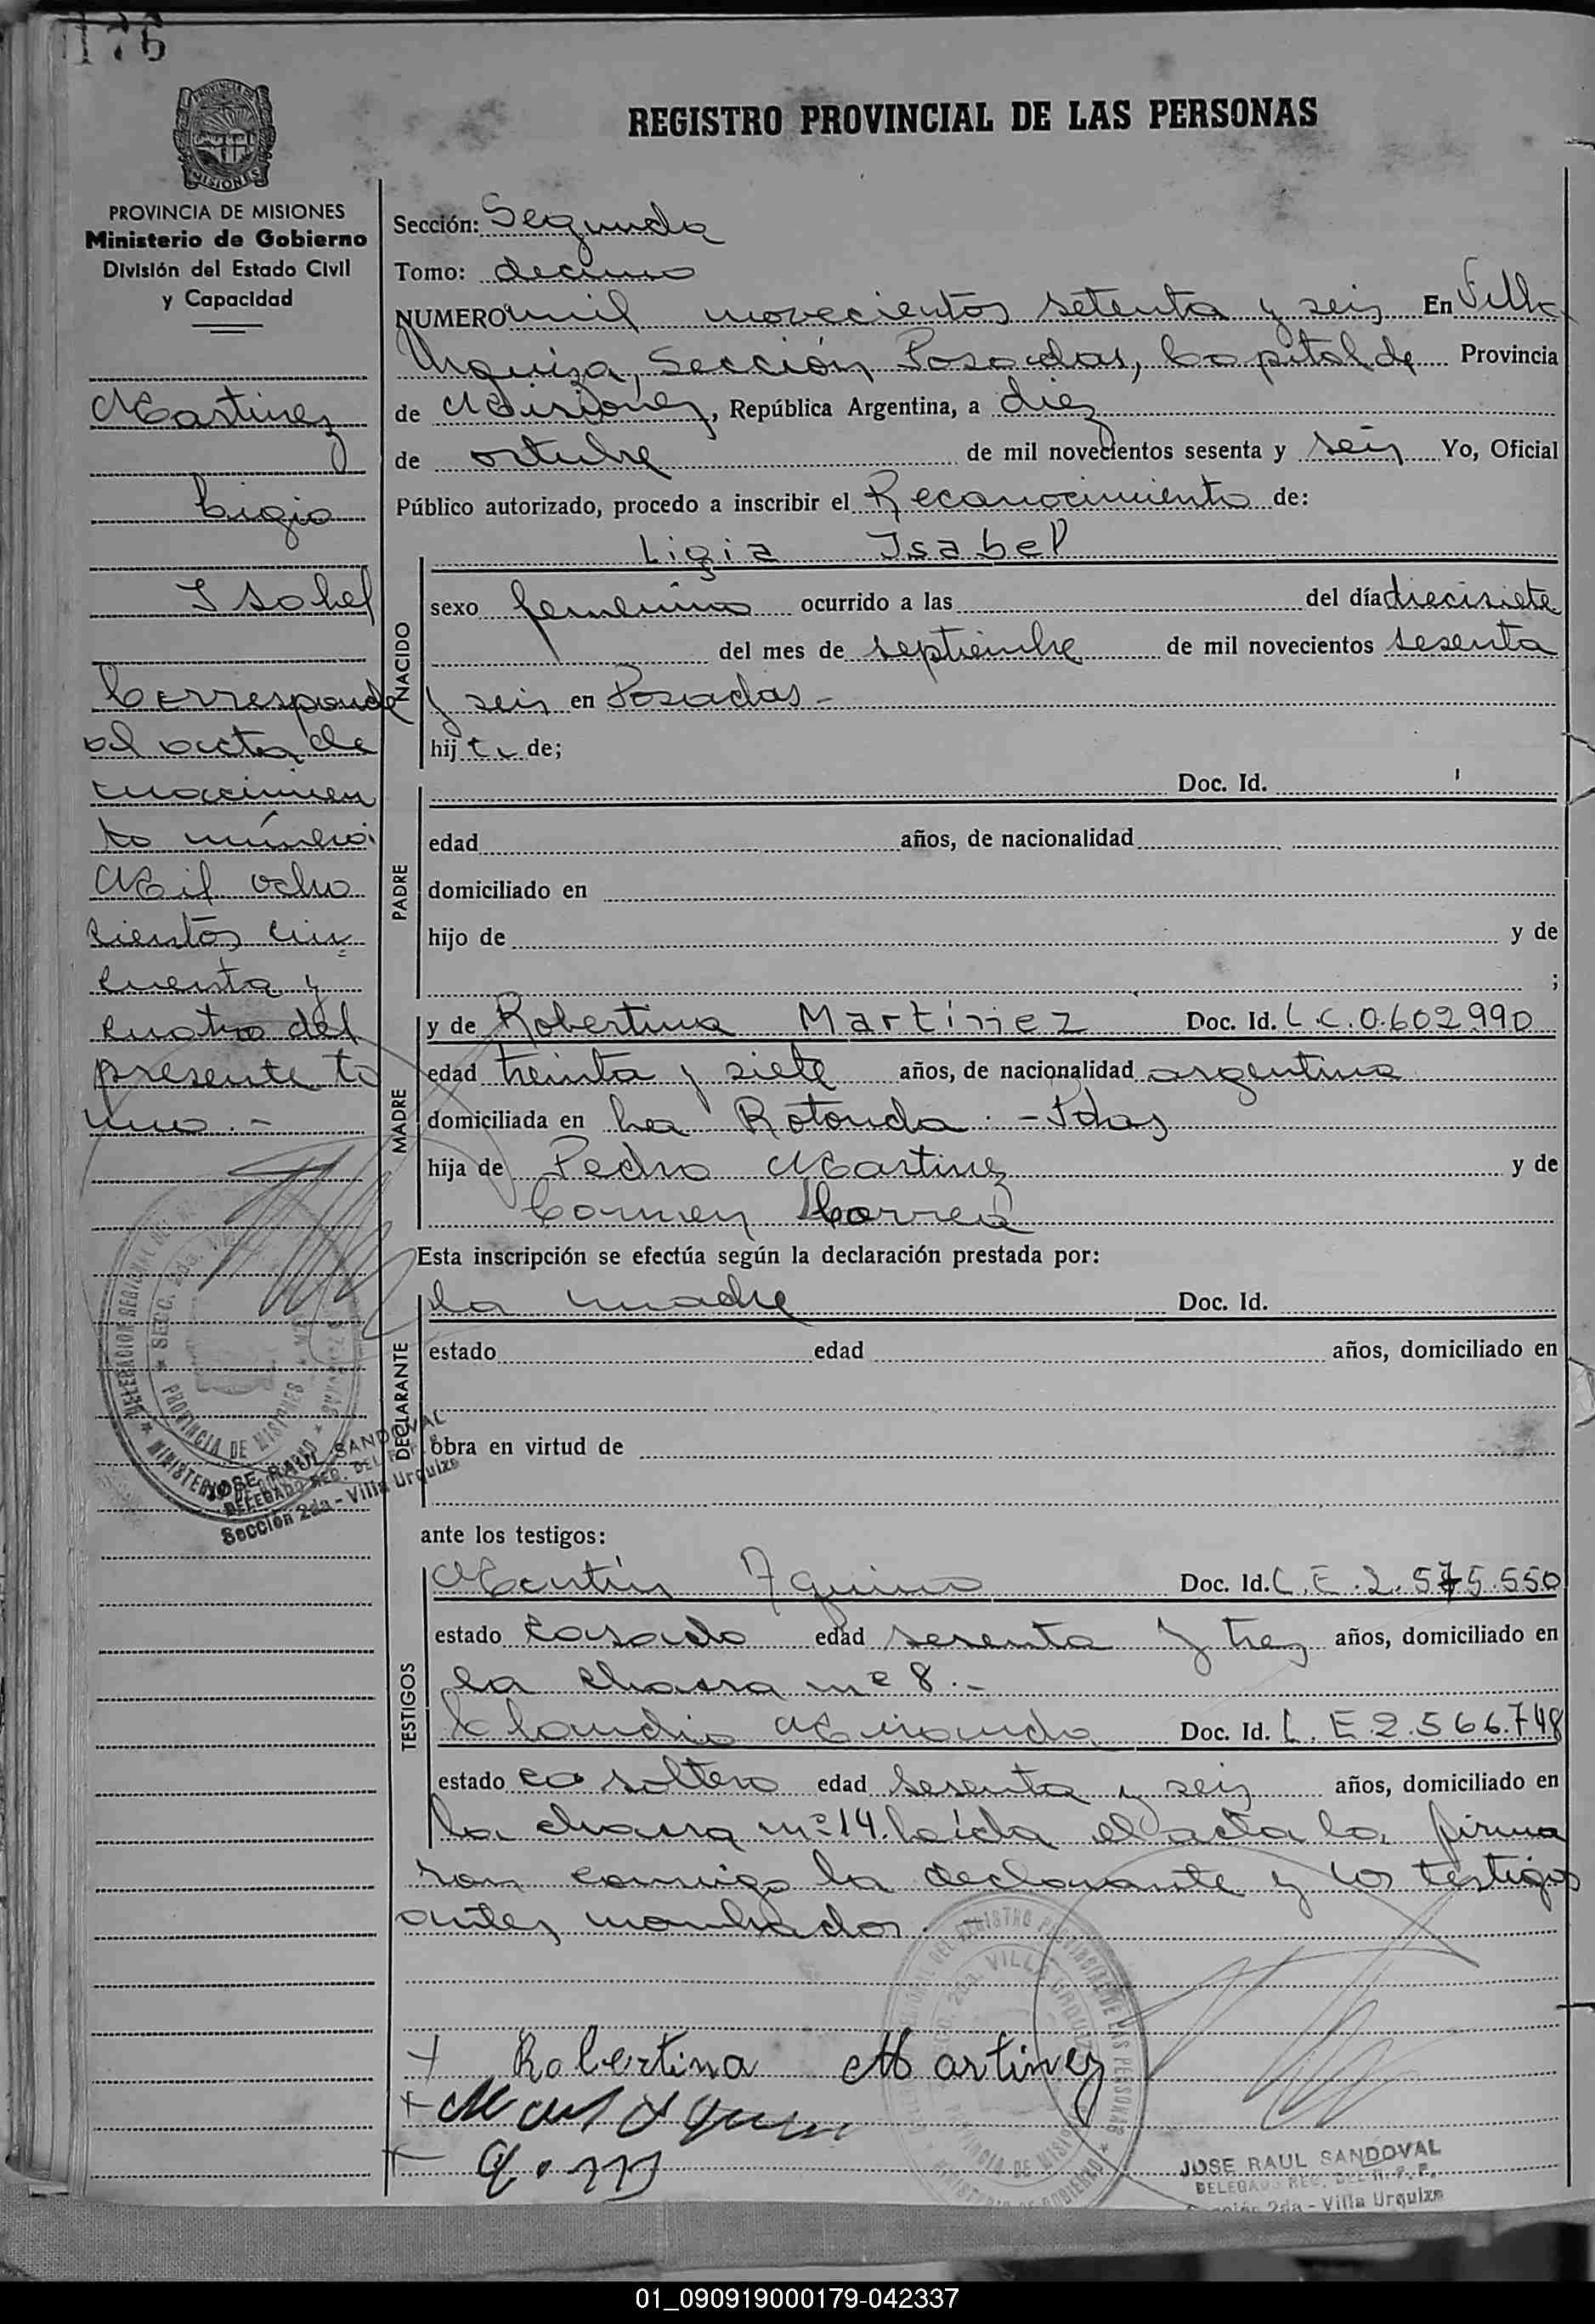 176
REGISTRO PROVINCIAL DE LAS PERSONAS
PROVINCIA DE MISIONES
Ministerio de Gobierno
División del Estado Civil
y Capacidad
Martinez
Ligia
Isabel
Corresponde
al acta de
nacimien
to número:
Mil ocho
cientos cin
cuenta y
cuatro del
presente to
mo.-
JOSE RAUL SANDOVAL
DELEGADO REG. DEL R. P. P.
Sección 2da - Villa Urquiza
Sección: Segunda
Tomo: decimo
NUMERO mil novecientos setenta y seis En Villa
Urquiza, Sección Posadas, Capital de Provincia
de Misiones, República Argentina, a diez
de octubre de mil novecientos sesenta y seis Yo, Oficial
Público autorizado, procedo a inscribir el Reconocimiento de:
Ligia Isabel
NACIDO
sexo femenino ocurrido a las del día diecisiete
del mes de septiembre de mil novecientos sesenta
y seis en Posadas -
hij a de;
PADRE
Doc. Id.
edad años, de nacionalidad
domiciliado en
hijo de y de
;
MADRE
y de Robertina Martínez Doc. Id. L.C.0.602990
edad treinta y siete años, de nacionalidad argentina
domiciliada en La Rotonda.- Pdas
hija de Pedro Martinez y de
Carmen Correa
Esta inscripción se efectúa según la declaración prestada por:
DECLARANTE
la madre Doc. Id.
estado edad años, domiciliado en
obra en virtud de
ante los testigos:
TESTIGOS
Martín Aquino Doc. Id. L.E.2.575.550
estado casado edad sesenta y tres años, domiciliado en
la chacra nº 8.-
Claudio Miranda Doc. Id. L.E 2.566.748
estado ca soltero edad sesenta y seis años, domiciliado en
la chacra nº 14. Leída el acta la firma
ron conmigo la declarante y los testigos
antes nombrados.
+ Robertina Martinez
+
+
JOSE RAUL SANDOVAL
DELEGADO REG. DEL R. P. P.
Sección 2da - Villa Urquiza
01_090919000179-042337